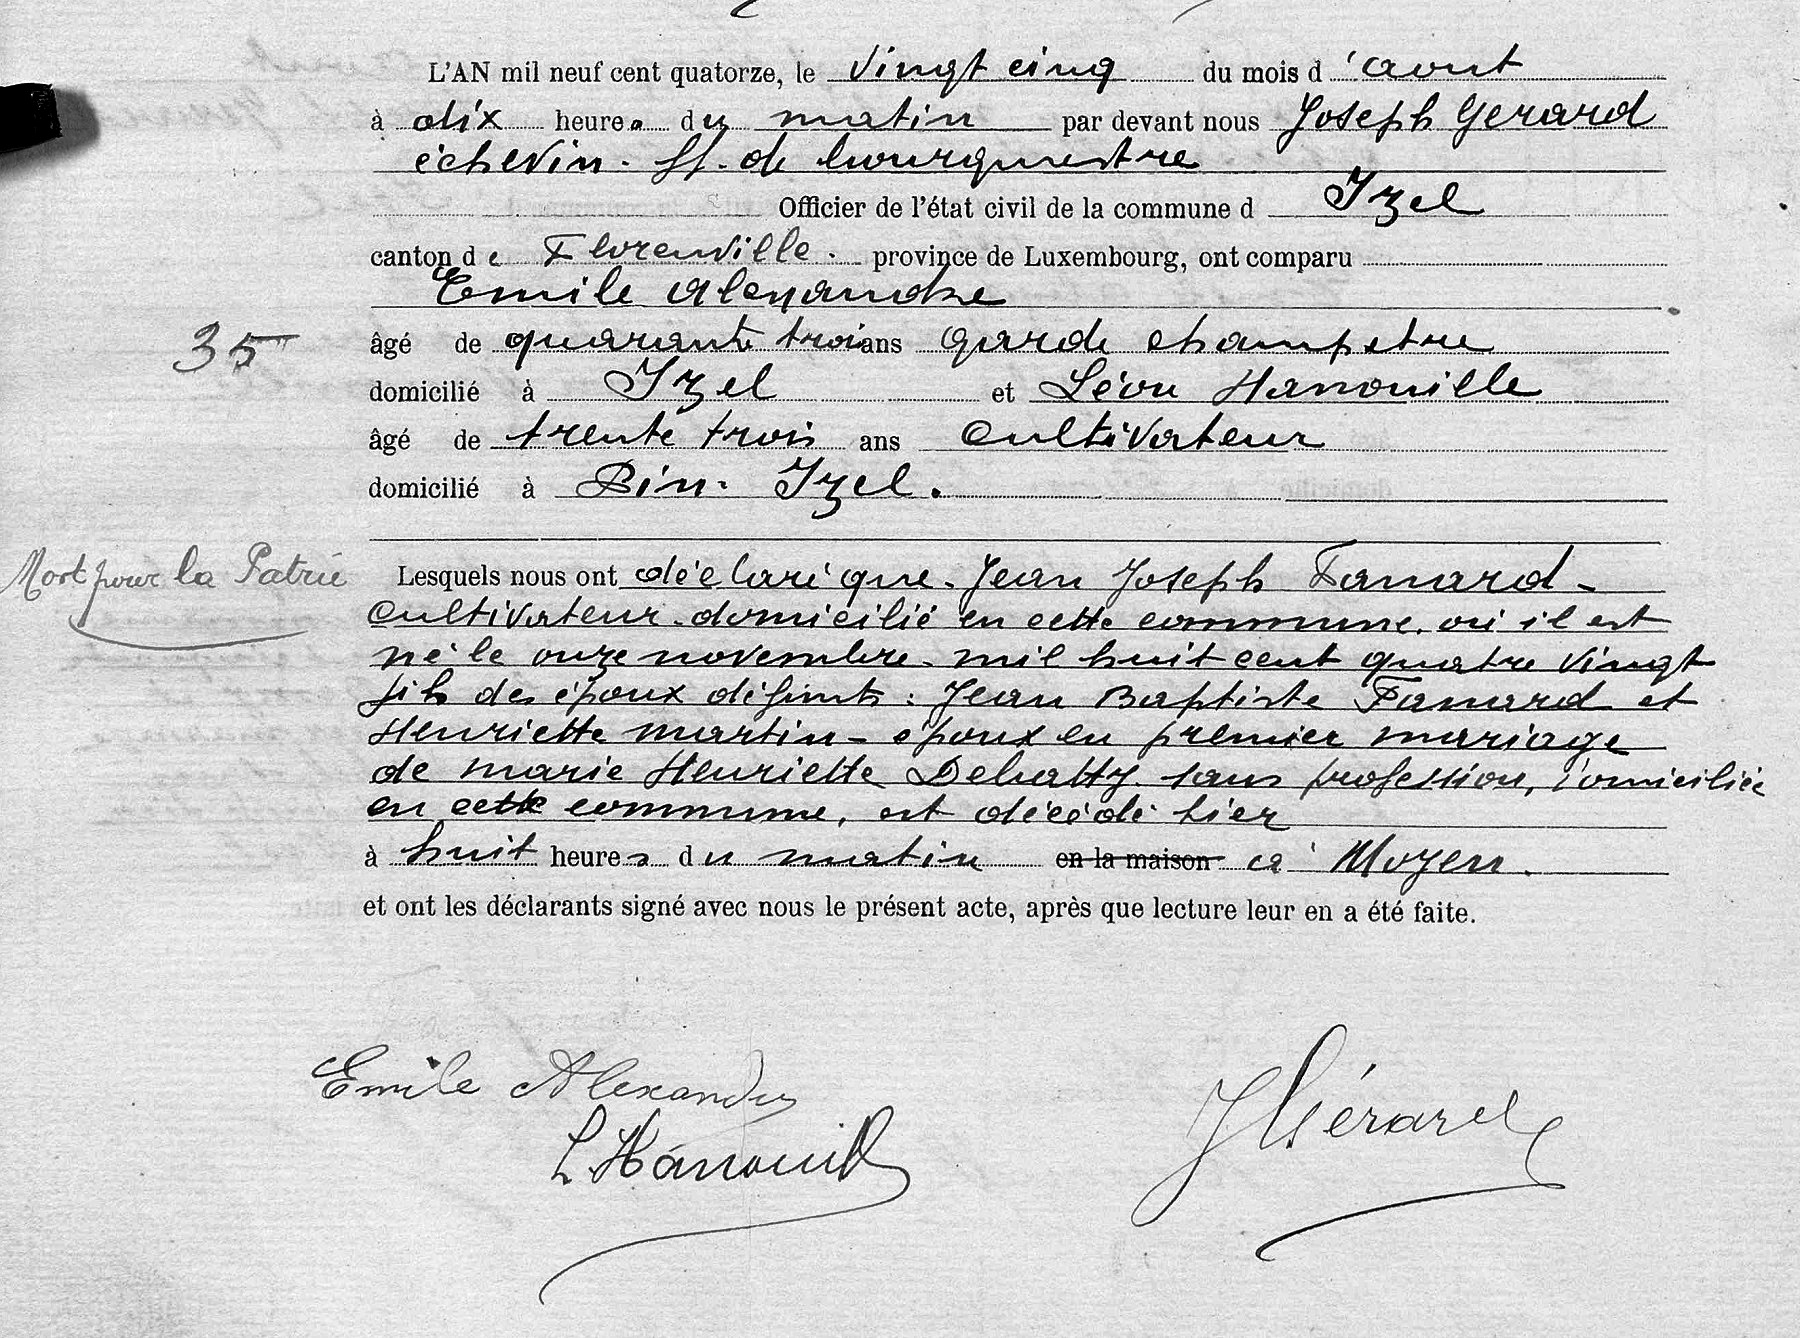 L'AN mil neuf cent quatorze, le vingt cinq du mois d'aout
à dix heures du matin par devant nous Joseph Gerard
échevin. ff. de bourgmestre
Officier de l'état civil de la commune d Izel
canton de Florenville. province de Luxembourg, ont comparu
Emile Alexandre
35
âgé de quarante trois ans garde champetre
domicilié à Izel et Léon Hanouille
âgé de trente trois ans cultivateur
domicilié à Pin-Izel.
Mort pour la Patrie
Lesquels nous ont déclaré que Jean Joseph Fanard -
cultivateur domicilié en cette commune, où il est
né le onze novembre mil huit cent quatre vingt
fils des époux défunts : Jean Baptiste Fanard et
Henriette Martin - époux en premier mariage
de Marie Henriette Dehatty sans profession, domiciliée
en cette commune, est décédé hier
à huit heures du matin en la maison à Moyen.
et ont les déclarants signé avec nous le présent acte, après que lecture leur en a été faite.
Emile Alexandre
L Hanouille
J Gérard